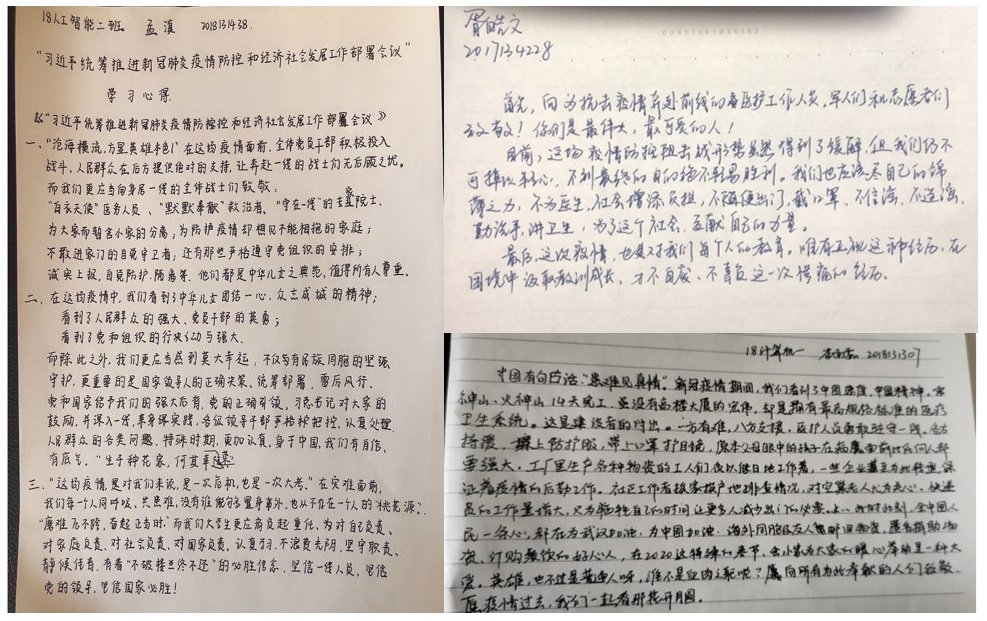 18人工智能二班 孟滇 2018131438.
"习近平统筹推进新冠肺炎疫情防控和经济社会发展工作部署会议"
学习心得
《"习近平统筹推进新冠肺炎疫情防控和经济社会发展工作部署会议》
一、"沧海横流,方显英雄本色!"在这场疫情面前,全体党员干部积极投入
战斗,人民群众在后方提供绝对的支持,让奔赴一线的战士们无后顾之忧。
而我们更应当向身居一线的全体战士们致敬:
"白衣天使"医务人员、"默默奉献"救治者、"守在一线"的专家院士、
为大家而弱舍小家的分离;为防护疫情却想见不能相抱的家庭;
不敢进家门的自觉守卫者;还有那些严格遵守党组织的安排;
诚实上报,自觉防护,隔离等.他们都是中华儿女之典范,值得所有人尊重.
二、在这场疫情中,我们看到了中华儿女团结一心、众志成城的精神;
看到了人民群众的强大、党员干部的英勇;
看到了党和组织的行动与强大.
而除此之外,我们更应当感到莫大幸运,不仅有民族同胞的坚强
守护,更重要的是国家领导人的正确决策,统筹部署,雷厉风行.
党和国家给予我们的强大后盾,党的正确引领,习总书记对大家的
鼓励,并深入一线,事身保实践,各级领导干部严格把控,认真处理
人民群众的各类问题,特殊时期,更加认真,身于中国,我们有自信
有底气,"生于种花家,何其幸运"
三、"这场疫情,是对我们来说,是一次危机,也是一次大考."在灾难面前,
我们每个人同呼吸,共患难,没有谁能够置身事外,也从不存在一个人的"桃花源":
"鹰难飞不跨,奋起正当时"而我们大学生更应肩负起重任,为对自己负责、
对家庭负责、对社会负责、对国家负责,认真学习,不浪费光阴,坚守职责、
静候佳音,有着"不破楼兰终不还"的必胜信念,坚信一线人员,坚信
党的领导,坚信国家必胜!
胥皓文
2017134228
首先,向为抗击疫情奔赴前线的各医护工作人员,军人们和志愿者们
致敬!你们是最伟大,最可爱的人!
目前,这场疫情防控阻击战形势虽然得到了缓解,但我们仍不
可掉以轻心,不到最终的目的绝不轻易胜利。我们也应该尽自己的绵
薄之力,不为医生,社会增添负担,不随便出门,戴口罩,不信谣,不造谣,
勤洗手,讲卫生,为了这个社会,贡献自己的力量。
最后,这次疫情,也是对我们每个人的教育。唯有正视这种经历,在
困境中汲取教训成长,才不自废,不辜负这一次惨痛的经历。
18计算机一 2018131307
中国有句古话:"患难见真情"。新冠疫情期间,我们看到了中国速度,中国精神。雷
神山、火神山14天完工,虽没有高楼大厦的宏伟,却是拥有最高规格标准的医疗
卫生系统。这是建设者的付出。一方有难,八方支援,医护人员勇敢驻守一线,各方
持援,穿上防护服,带上口罩护目镜,原本父母眼中的孩子在病魔面前比任何人都
要强大,工厂里生产各种物资的工人们夜以继日地工作着,一些企业甚至为此转型,保
证着疫情的后勤工作。社区工作者挨家挨户地排查情况,对空巢老人尤为关心,快递
员的工作量增大,只为牺牲自己的时间让更多人减少出门的必要。此时此刻,全中国人
民一条心,都在为武汉加油,为中国加油。海外同胞
资,订购餐饮的好心人,在2020这特殊的春节,
爱。英雄,也不过是普通人呀,谁不是血肉之躯呢?愿向所有为此奉献的人们致敬,
愿疫情过去,我们一起看那花开月圆。